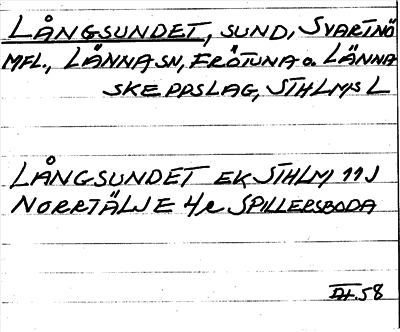 LÅNGSUNDET, SUND, SVARTNÖ
MFL., LÄNNA SN, FRÖTUNA o. LÄNNA
SKEPPSLAG, STHLMS L
LÅNGSUNDET EK STHLM 11J
NORRTÄLJE 4e SPILLERSBODA
DH.58